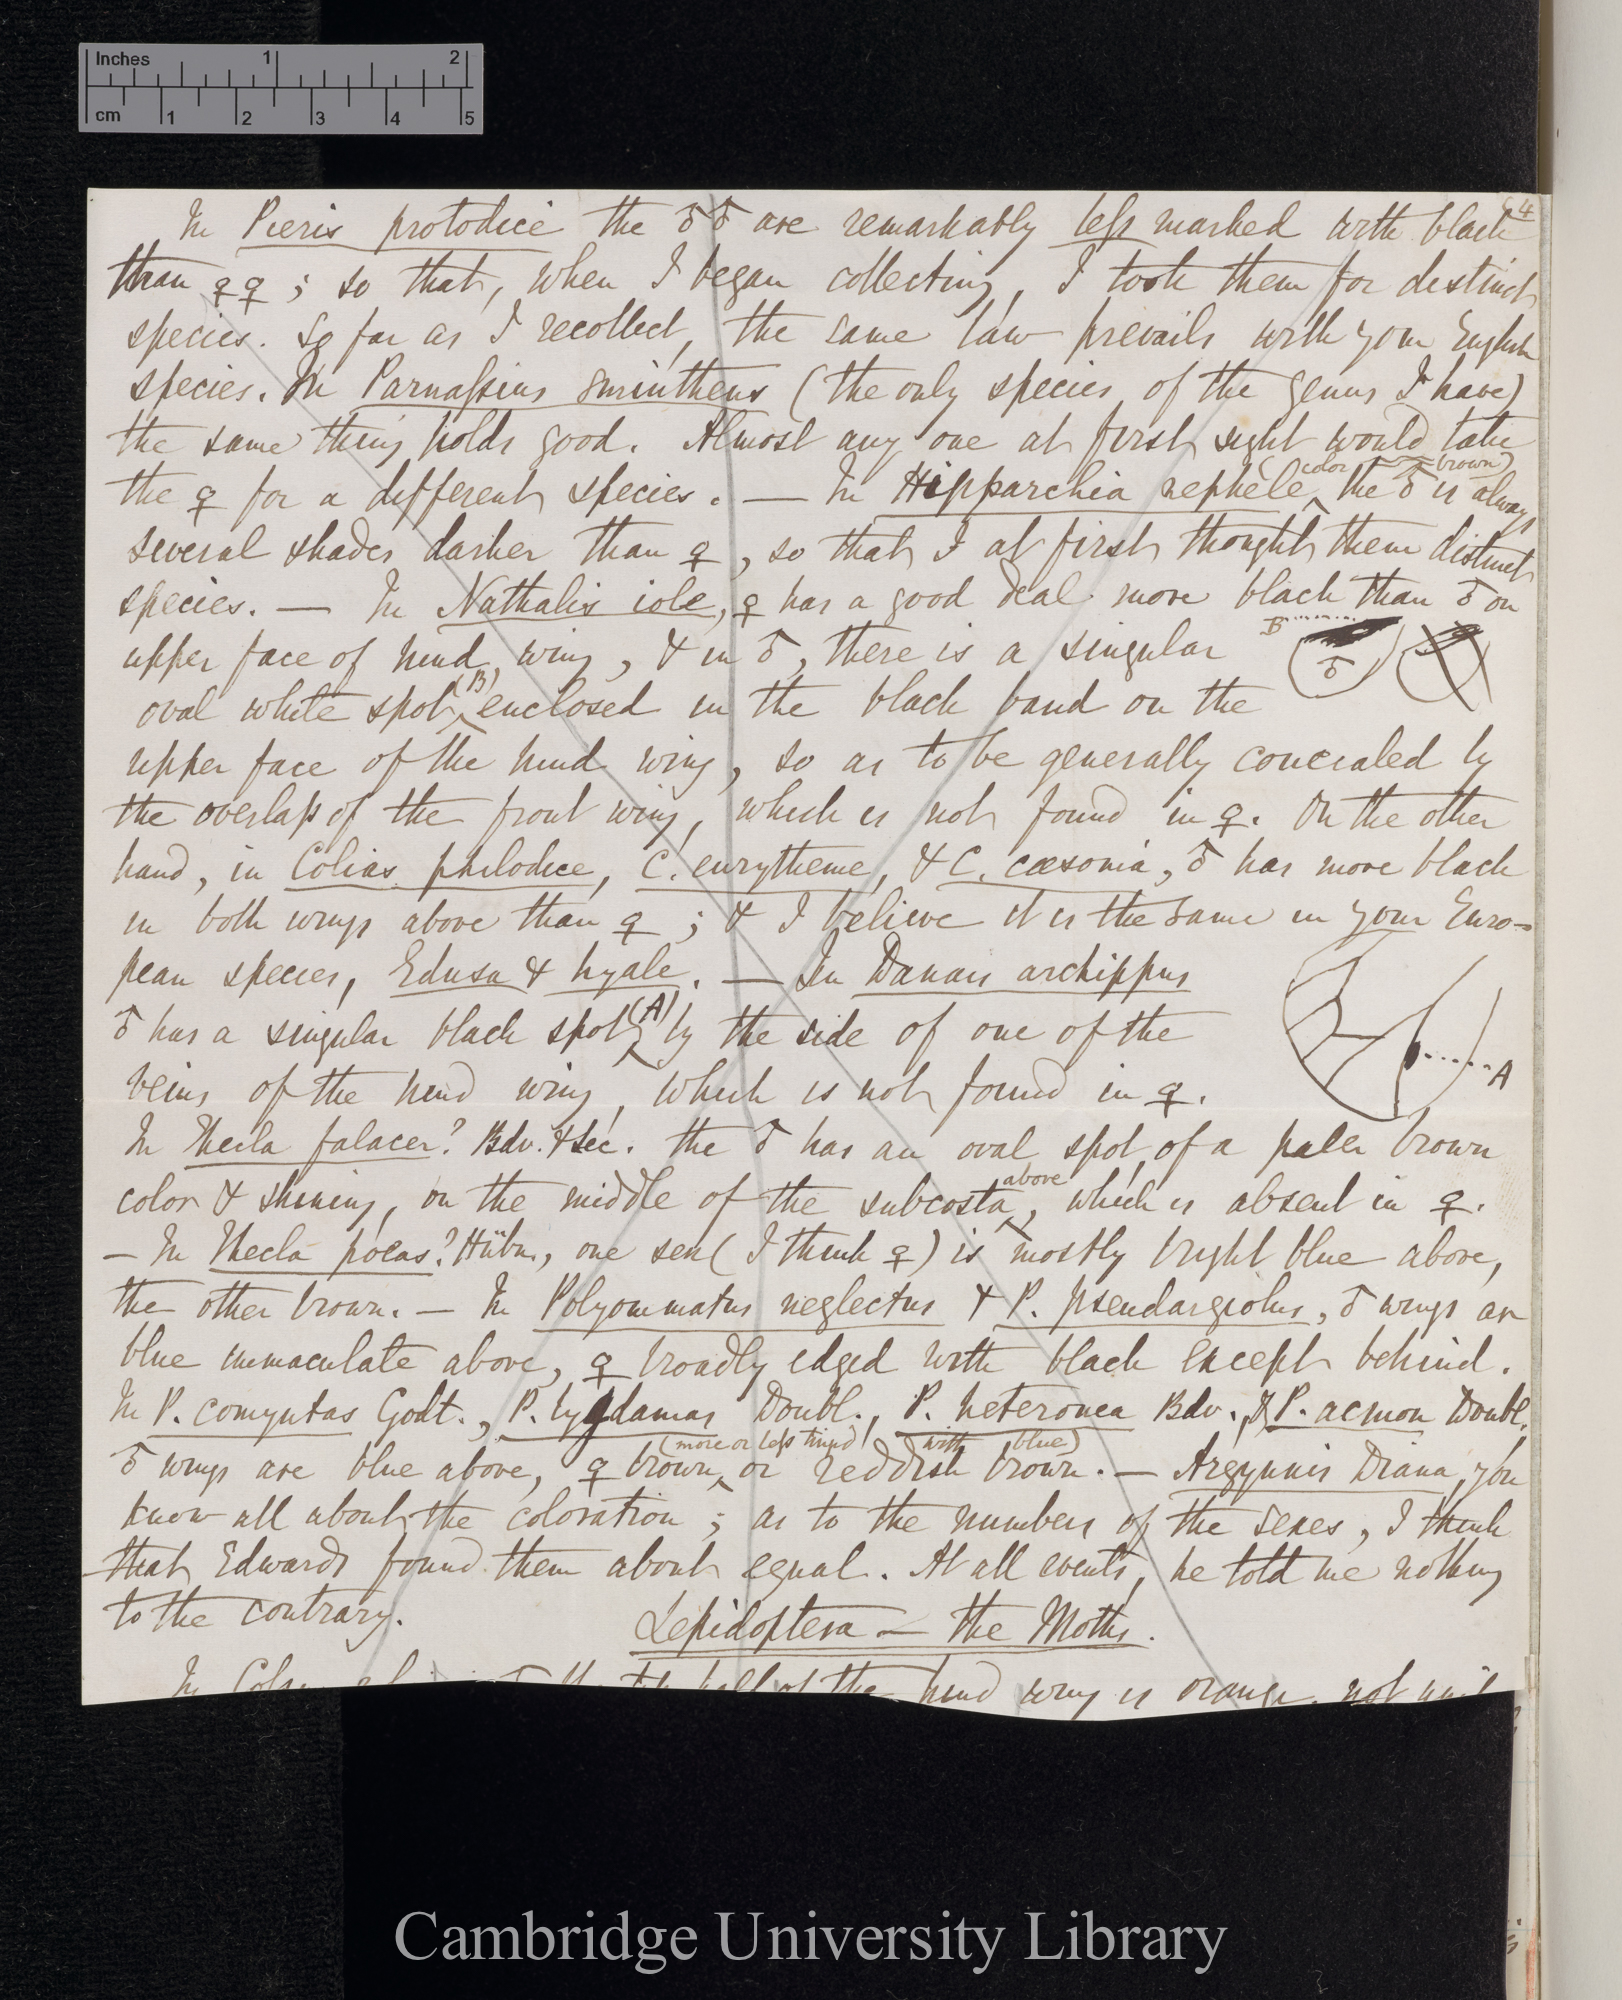 Inches 1 2
cm 1 2 3 4 5
64
In Pieris protodice the ♂♂ are remarkably less marked with black
than ♀♀; so that, when I began collecting, I took them for distinct
species. So far as I recollect, the same law prevails with your English
species. In Parnassius smintheus (the only species of the genus I have)
the same thing holds good. Almost any one at first sight would take
(color brown)
the ♀ for a different species. — In Hipparchia nephele, the ♂ is always
several shades darker than ♀, so that I at first thought them distinct
species. — In Nathalis iole, ♀ has a good deal more black than ♂ on
upper face of hind wing, & in ♂, there is a singular
B ♂ ♀
oval white spot (B) enclosed in the black band on the
upper face of the hind wing, so as to be generally concealed by
the overlap of the front wing, which is not found in ♀. On the other
hand, in Colias philodice, C. eurytheme, & C. cæsonia, ♂ has more black
in both wings above than ♀; & I believe it is the same in your Euro-
pean species, Edusa & hyale. — In Danais archippus
♂ has a singular black spot (A) by the side of one of the
A
veins of the hind wing, which is not found in ♀.
In Thecla falacer? Bdv. & Lec. the ♂ has an oval spot of a paler brown
color & shining, on the middle of the subcosta above, which is absent in ♀.
— In Thecla pœas? Hübn., one sex (I think ♀) is mostly bright blue above,
the other brown. — In Polyommatus neglectus & P. pseudargiolus, ♂ wings are
blue immaculate above, ♀ broadly edged with black except behind.
In P. comyntas Godt., P. lygdamas Doubl., P. heteronea Bdv., & P. acmon Doubl.
(more or less tinged with blue)
♂ wings are blue above, ♀ brown, or reddish brown. — Argynnis Diana, you
know all about the coloration; as to the numbers of the sexes, I think
that Edwards found them about equal. At all events, he told me nothing
to the contrary.
Lepidoptera — the Moths.
hind wing is orange, not
Cambridge University Library